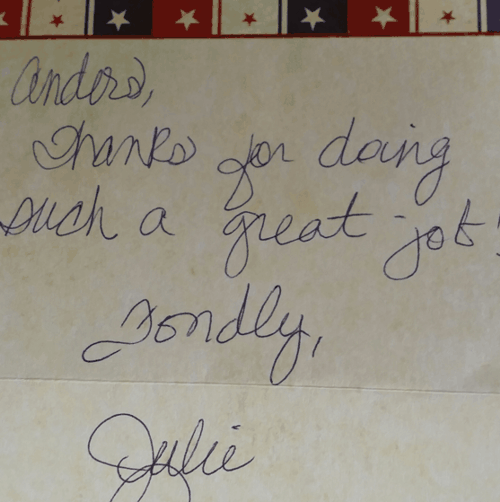 Anders,
Thanks for doing
such a great job!
Fondly,
Julie